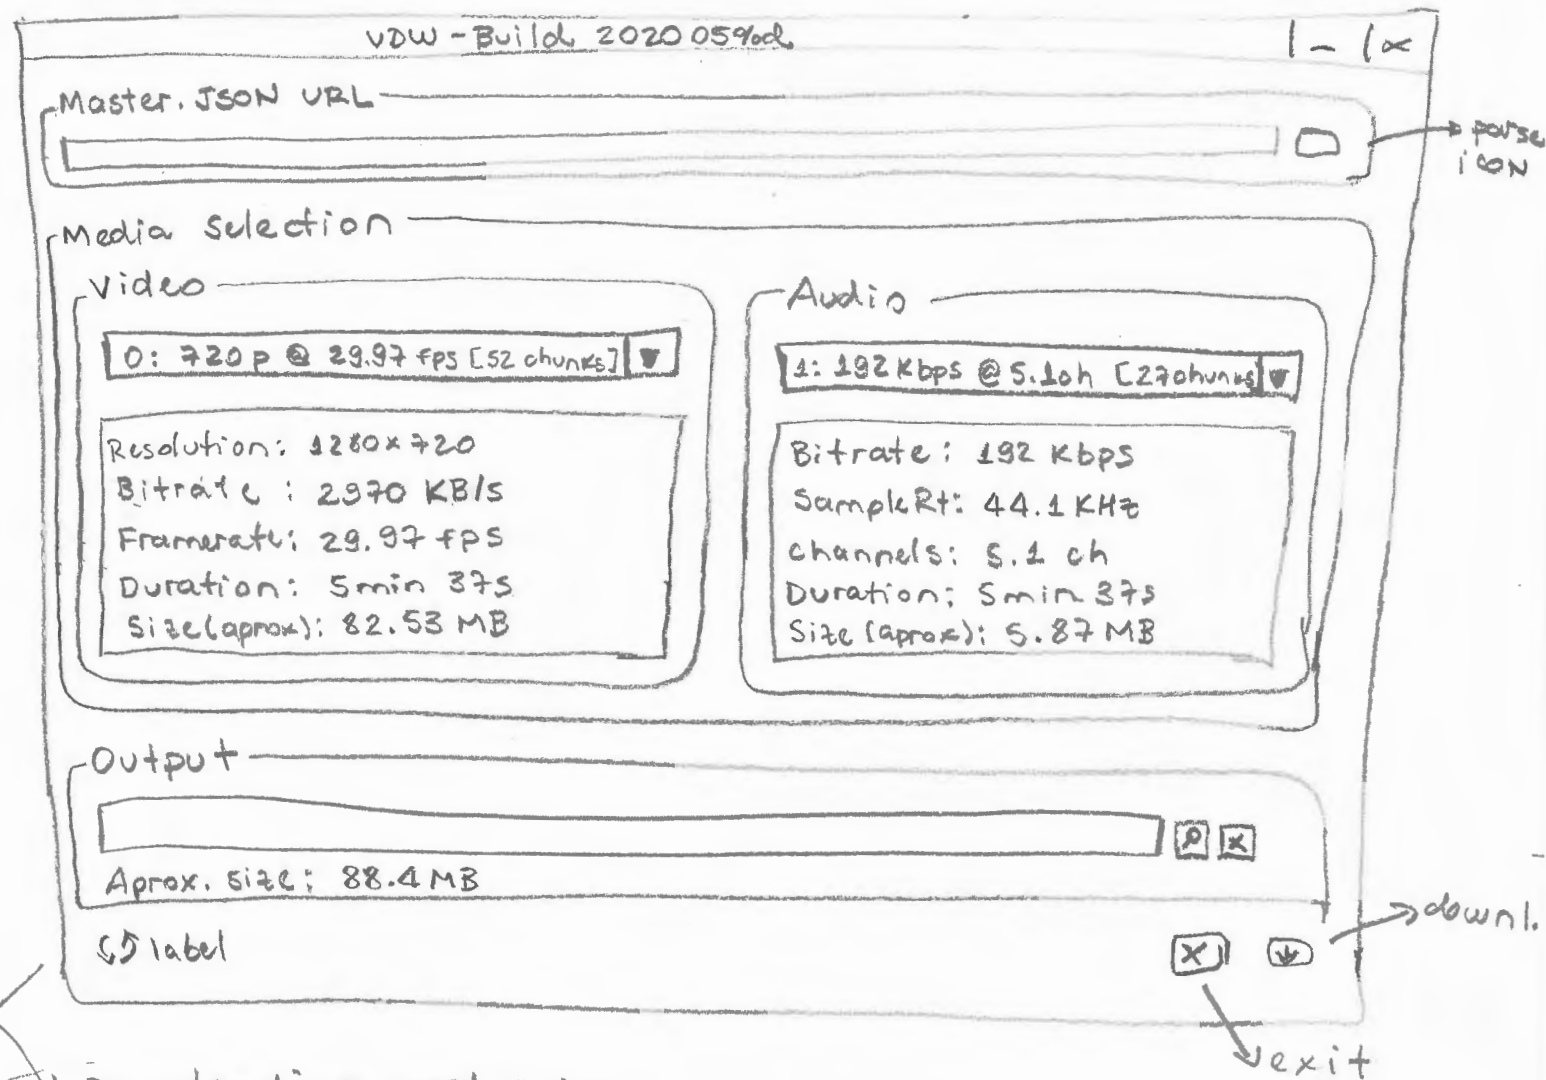 VDW - Build 202005%d
Master.JSON URL
parse
icon
Media selection
Video
0: 720p @ 29.97 fps [52 chunks]
Resolution: 1280x720
Bitrate : 2970 KB/s
Framerate: 29.97 fps
Duration: 5min 37s
Size(aprox): 82.53 MB
Audio
1: 192 Kbps @ 5.1ch [27chunks]
Bitrate: 192 Kbps
SampleRt: 44.1 KHz
Channels: 5.1 ch
Duration: 5min 37s
Size (aprox): 5.87 MB
Output
Aprox. size: 88.4 MB
label
downl.
exit